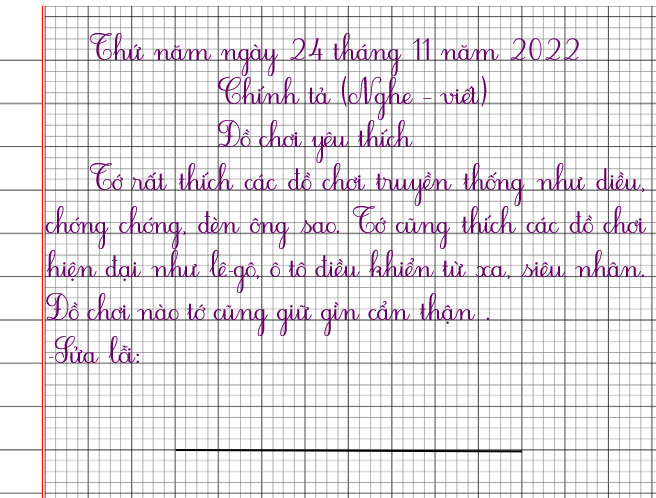 Thứ năm ngày 24 tháng 11 năm 2022
Chính tả (Nghe - viết)
Đồ chơi yêu thích
Tớ rất thích các đồ chơi truyền thống như diều,
chóng chóng, đèn ông sao. Tớ cũng thích các đồ chơi
hiện đại như lê-gô, ô tô điều khiển từ xa, siêu nhân.
Đồ chơi nào tớ cũng giữ gìn cẩn thận .
-Sửa lỗi: